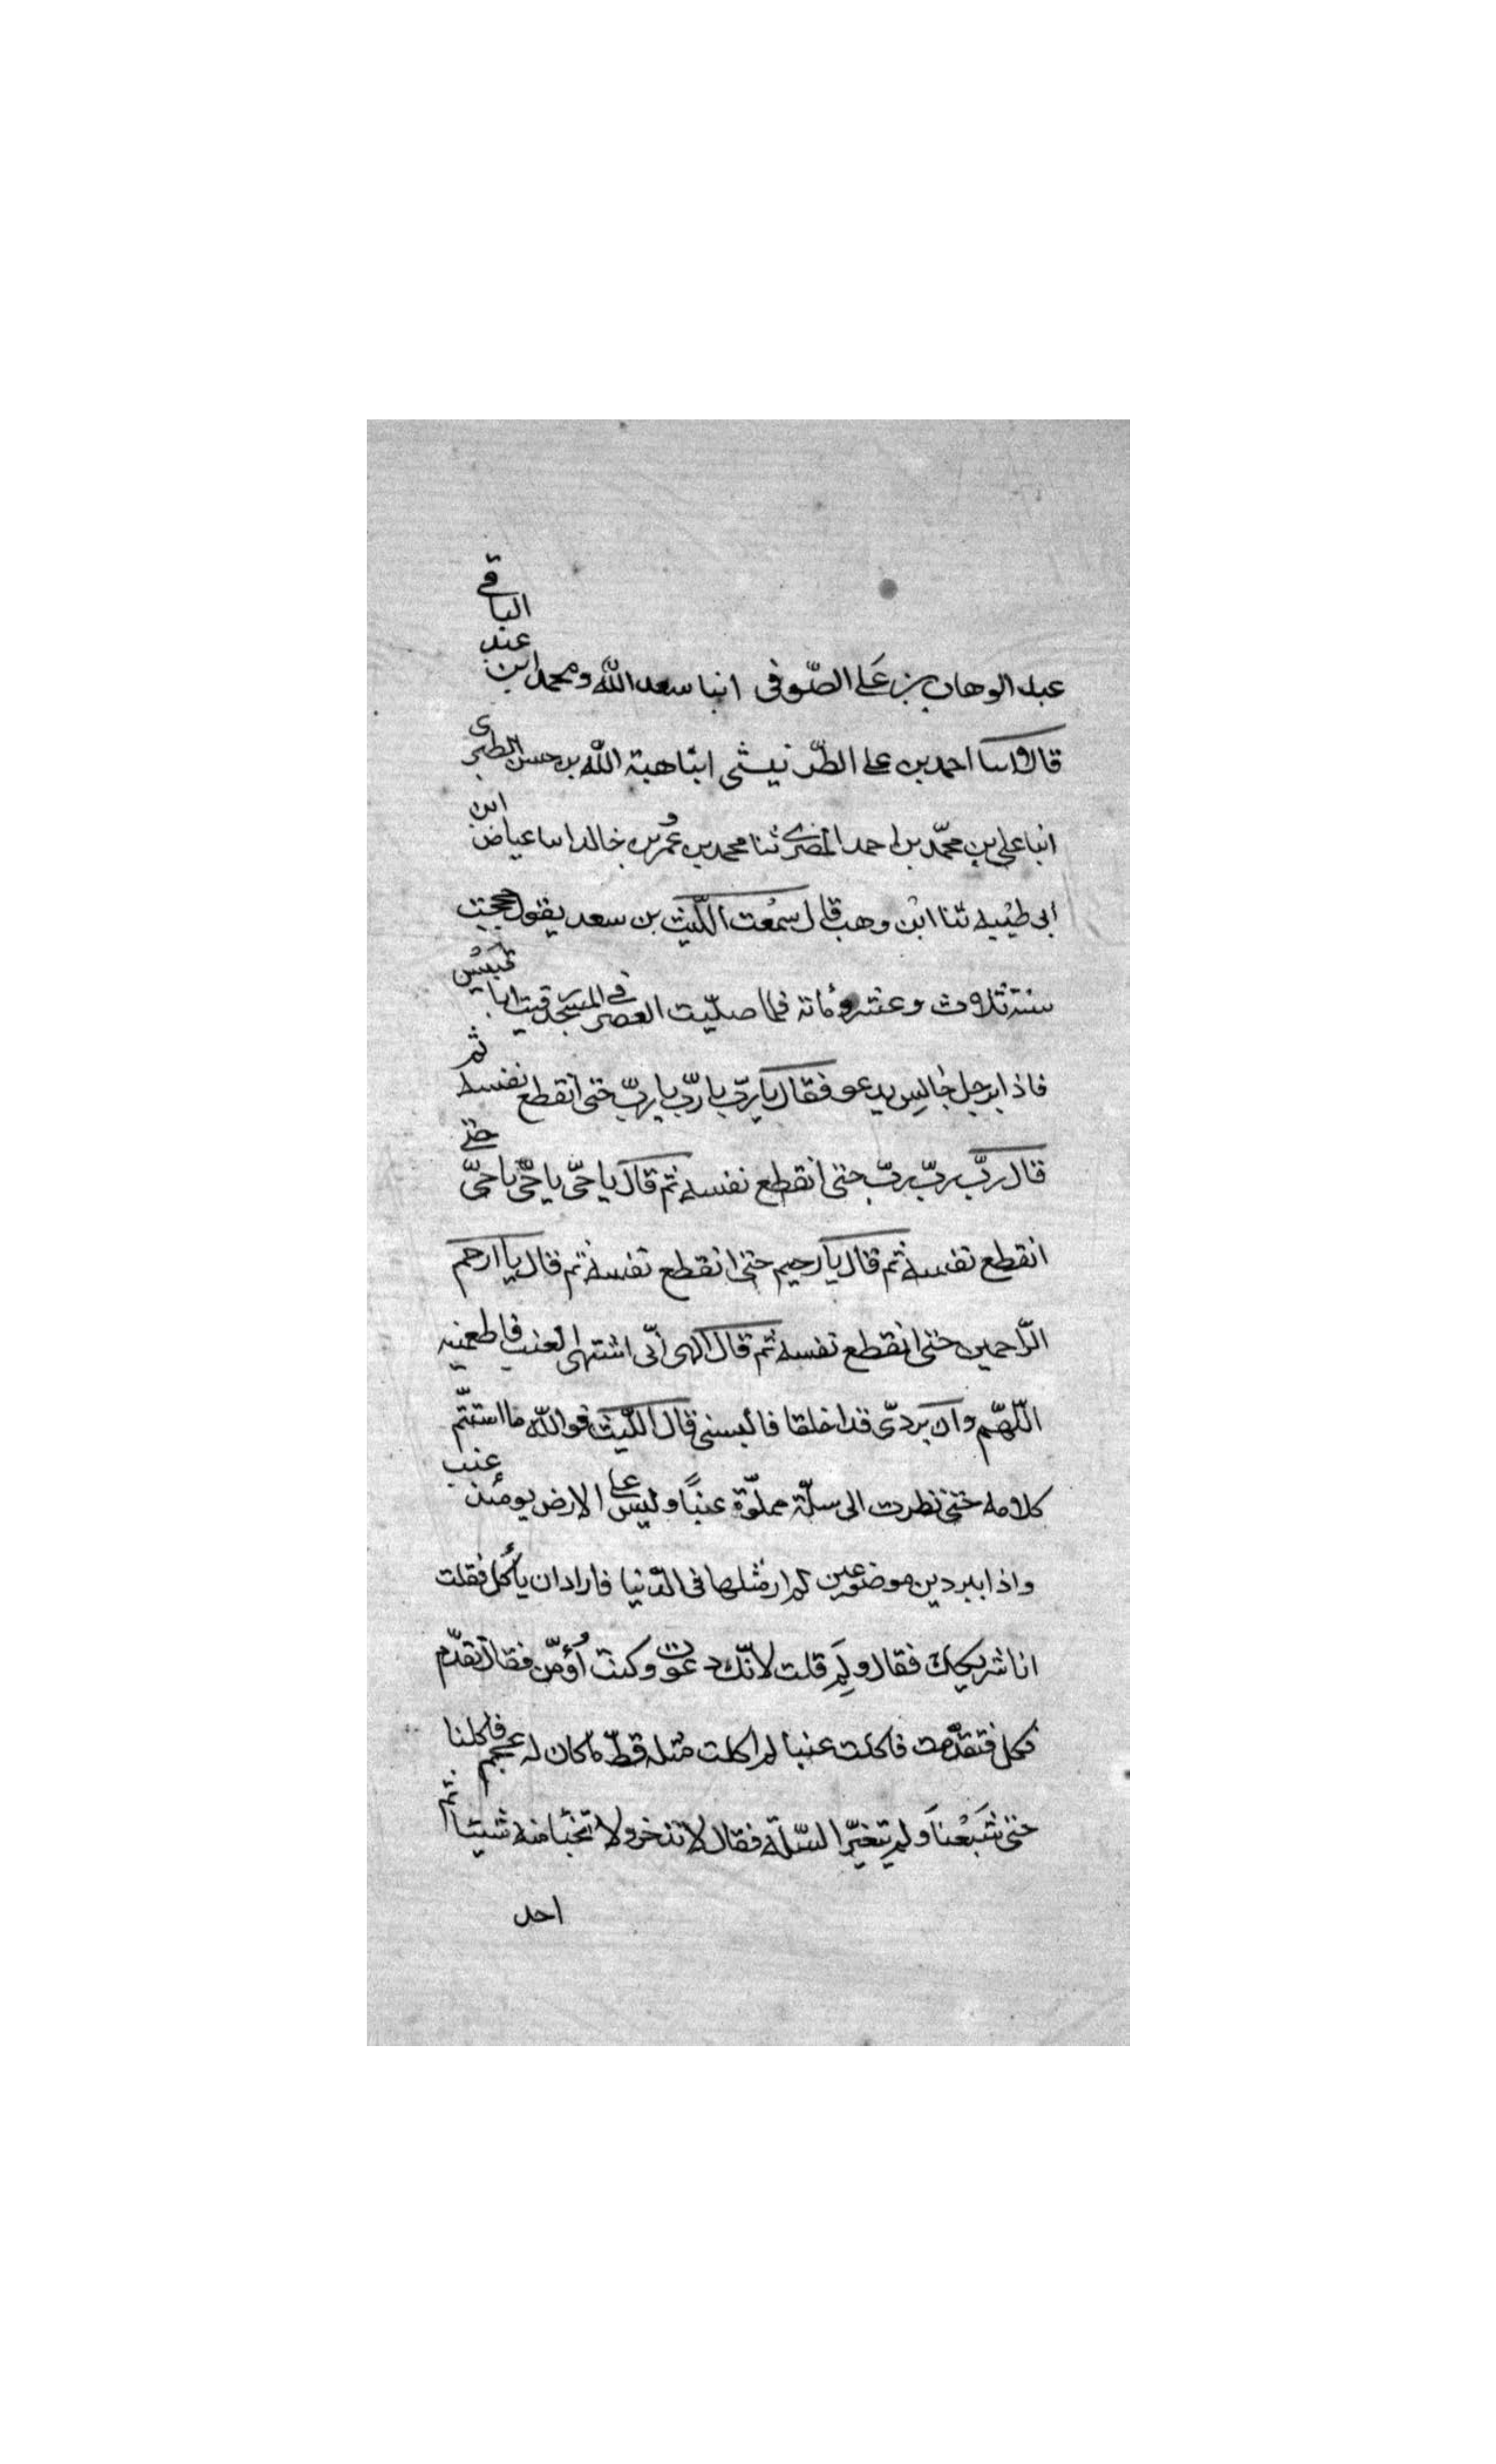 عبد الوهاب بن علی الصّوفی انبا سعد اللّه ومحمد ابن عبد الباقی
قالا اسا احمد بن علی الطّر نیشی ابنا هبة اللّه بن حسن الطبری
انبا علی بن محمّد بن احمد المصری ثنا محمد بن عُمر بن خالد اسا عیاض ابن
ابی طیبه ثنا ابن وهب قال سمعت اللّیث بن سعد یقول حججت
سنة ثلاث وعشر ومأتة فلما صلّیت العصر فی المسجد رقیت ابا قبیس
فاذا برجل جالس یدعو فقال یا ربّ یا ربّ یا ربّ حتی انقطع نفسه ثم
قال ربّ ربّ ربّ حتی انقطع نفسه ثم قال یا حیّ یا حیّ یا حیّ حتی
انقطع نفسه ثم قال یا رحیم حتی انقطع نفسه ثم قال یا ارحم
الرّاحمین حتی انقطع نفسه ثم قال الهی انّی اشتهی العنب فاطعمنیه
اللّهمّ وان بردیّ قد اخلقا فالبسنی قال اللّیث فواللّه ما استتمّ
کلامه حتی نظرت الی سلّة مملوّة عنبًا ولیس علی الارض یومئذ عنب
واذا ببردین موضوعین لم ار مثلها فی الدّنیا فاراد ان یأکل فقلت
انا شریکک فقال ولِمَ قلت لانّک دعوت وکنت اُؤمّن فقال تقدّم
فکل فتقدّمت فاکلت عنبا لم اکلت مثله قطّ ما کان له عجم فاکلنا
حتی شَبَعْنَا ولم یتغیّر السّلّة فقال لا تدّخر ولا تخبّأ منه شیئا ثم
احد